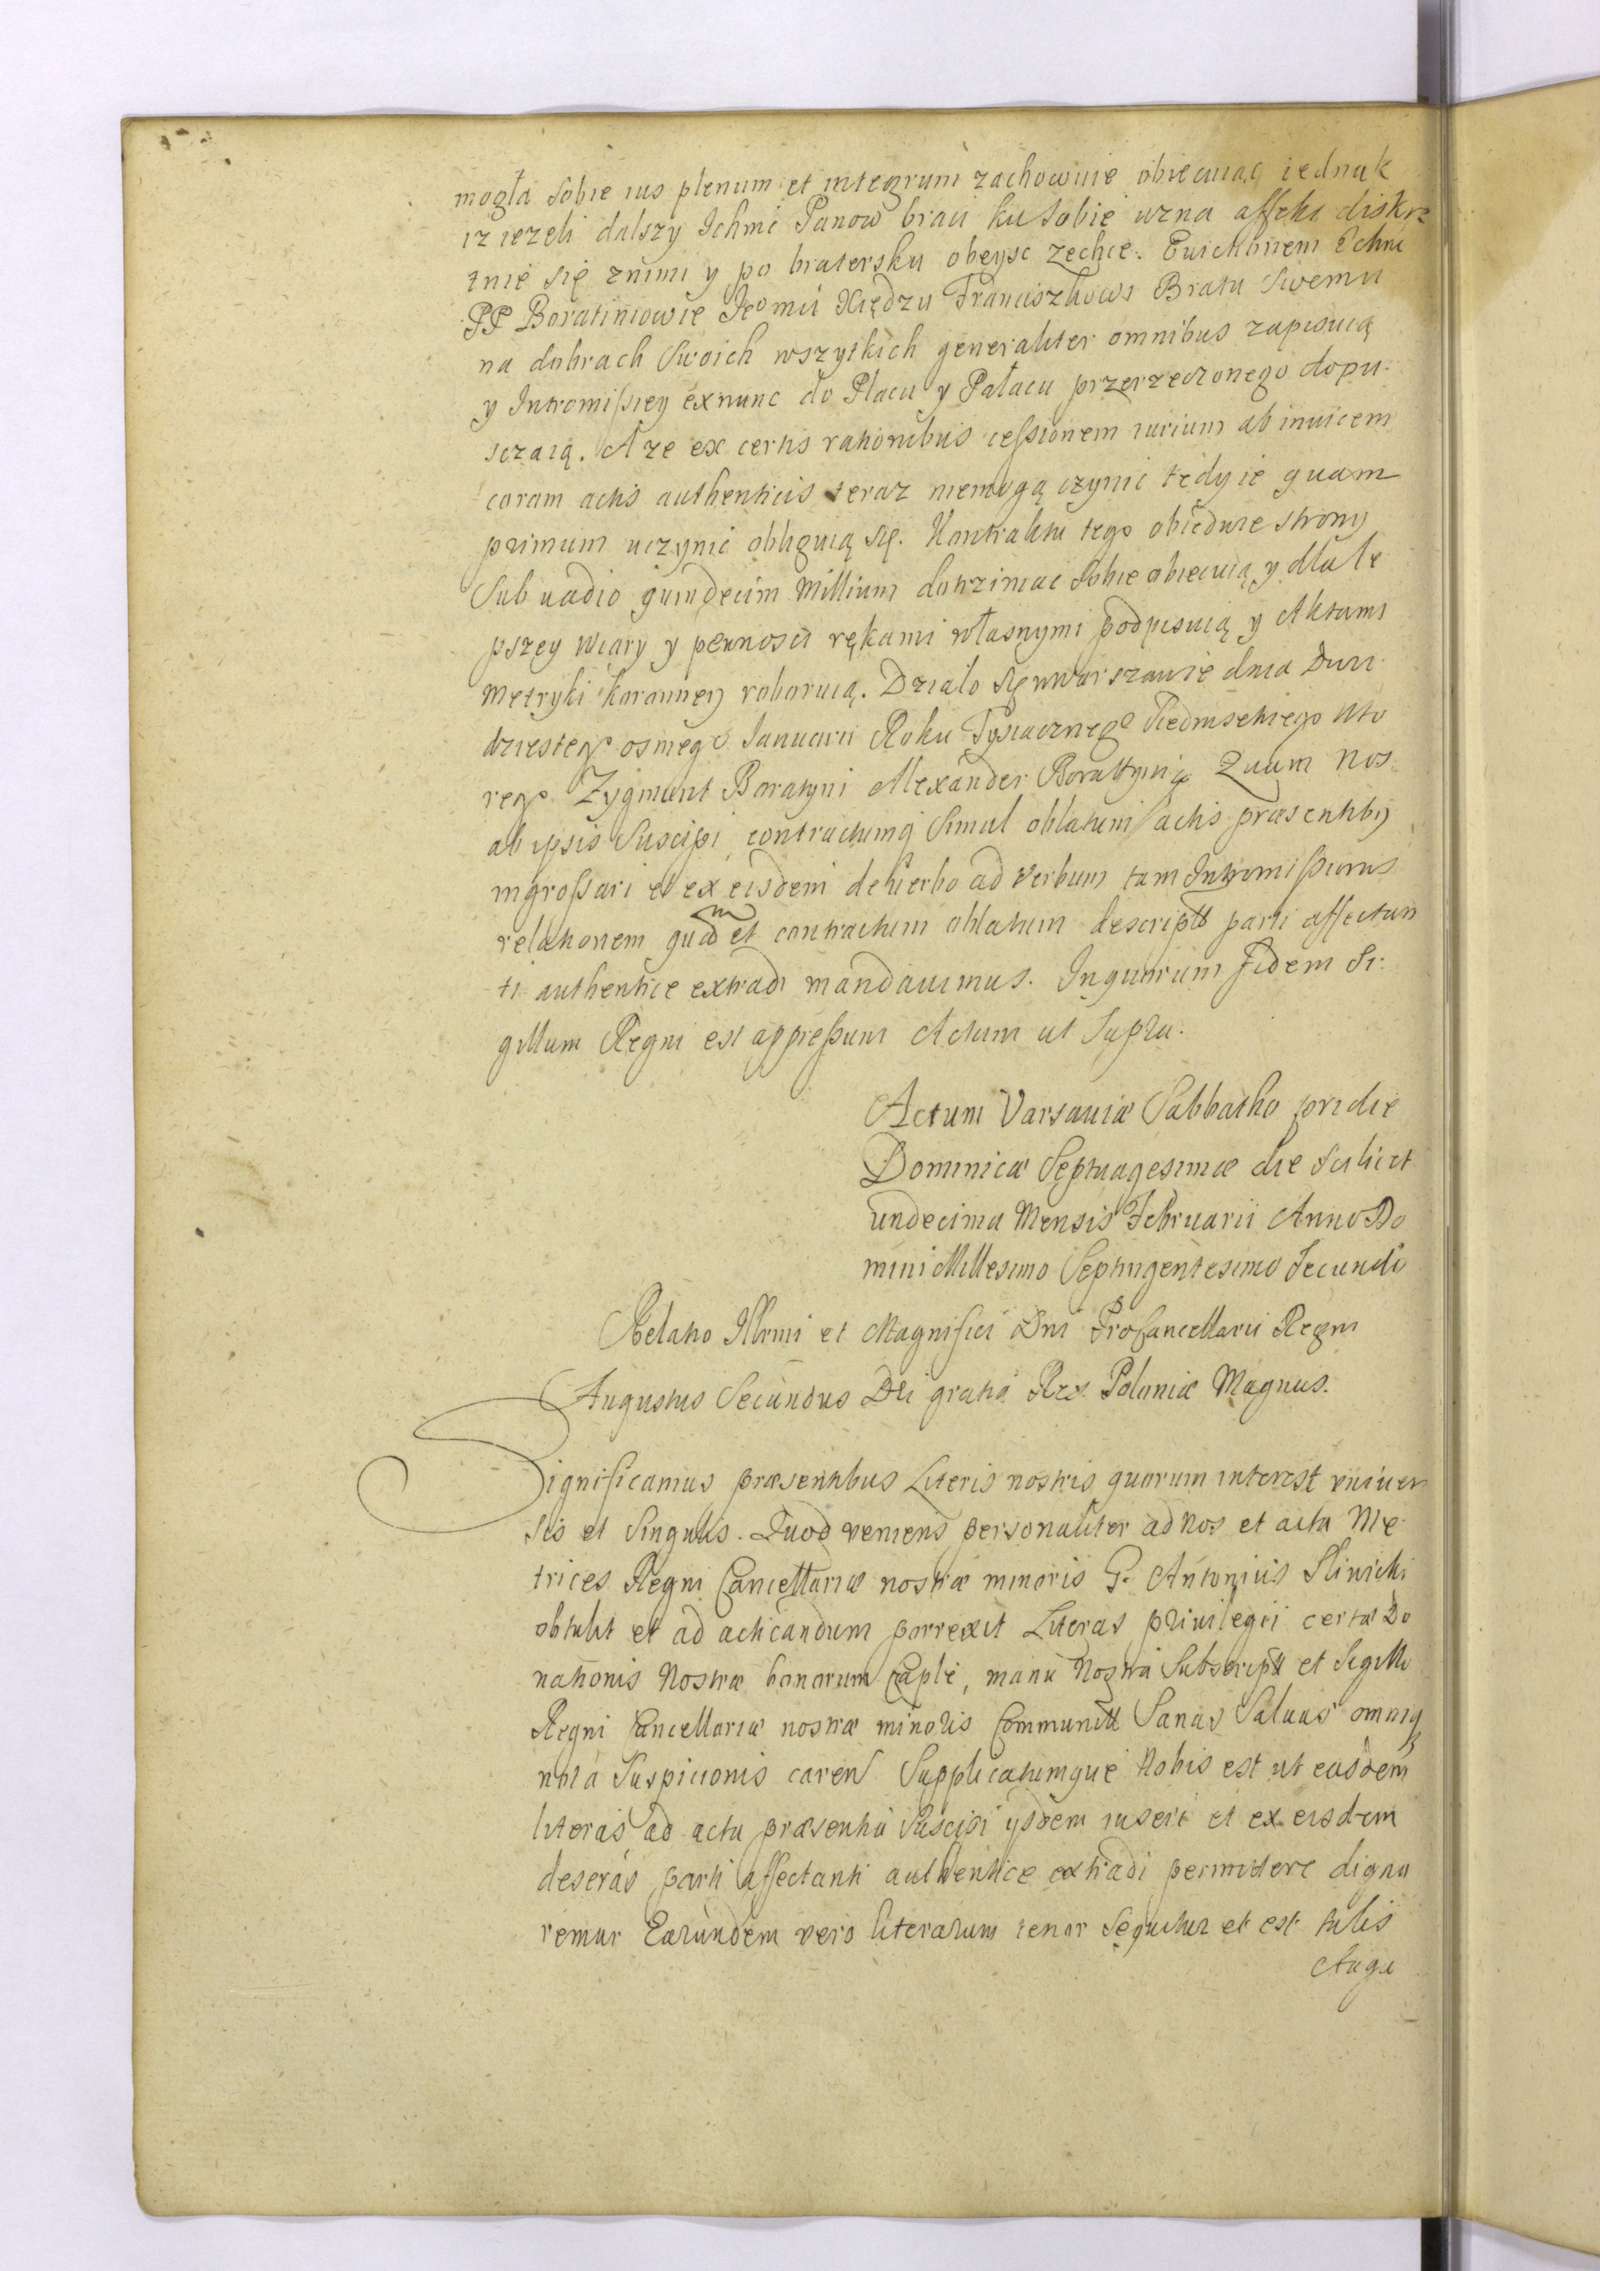 mogła sobie ius plenum et integrum zachowuie obiecuiąc iednak
iz iezeli dalszy Ichmć Panow braci ku sobie uzna affekt diskre
tnie się znimi y po bratersku obeysc zechce. Ewictionem Ichmć
PP Boratiniowie Jeomći Xiędzu Franciszkowi Bratu Swemu
na dobrach Swoich wszytkich generaliter omnibus zapisuią
y Intromissiey exnunc do Placu y Pałacu przerzeczonego dopu
sczaią. A ze ex certis rationibus cessionem iurium ab inuicem
coram actis authenticis teraz niemogą czynic tedy ie quam
primum uczynic obliguią się. Kontraktu tego obiedwie strony
Sub uadio quindecim Millium dotrzimac Sobie obiecuią y dla le
pszey wiary y pewnosci rękami własnymi podpisuią y Aktami
Metryki koronney roboruią. Działo się w Warszawie dnia Dwu
dziestego osmego Januarii Roku Tysiacznego Siedmsetnego Wto
rego Zygmunt Boratyni Alexander Borattyni Quam Nos
ab ipsis Suscipi contractumq Simul oblatum actis præsentibg
ingrossari et ex eisdem de uerbo ad verbum tam Intromissionis
relationem quam et contractum oblatum descriptt parti affectan
ti authentice extradi mandauimus. In quorum fidem Si
gillum Regni est appressum Actum ut Supra.
Actum Varsauiæ Sabbatho pridie
Dominicæ Septuagesimæ die scilicet
undecima Mensis Februarii Anno Do
mini Millesimo Septingentesimo Secundo
Relatio Illrmi et Magnifici Dni ProCancellarii Regni
Augustus Secundus Dei gratia Rex Poloniæ Magnus.
Significamus præsentibus Literis nostris quorum interest vniuer
sis et Singulis. Quod veniens personaliter ad Nos et acta Me
trices Regni Cancellariæ nostræ minoris G. Antonius Sliwicki
obtulit et ad acticandum porrexit Literas priuilegii certæ Do
nationis Nostræ bonorum Caple, manu Nostra Subscriptt et Sigillo
Regni Cancellariæ nostræ minoris Communitt Sanas Saluas omniq
nota Suspicionis caren Supplicatumque Nobis est ut easdem
literas ad acta præsentia suscipi ysdem inseri et ex eisdem
descras parti affectanti authentice extradi permittere digna
remur Earundem vero literarum tenor sequitur et est talis
Augu